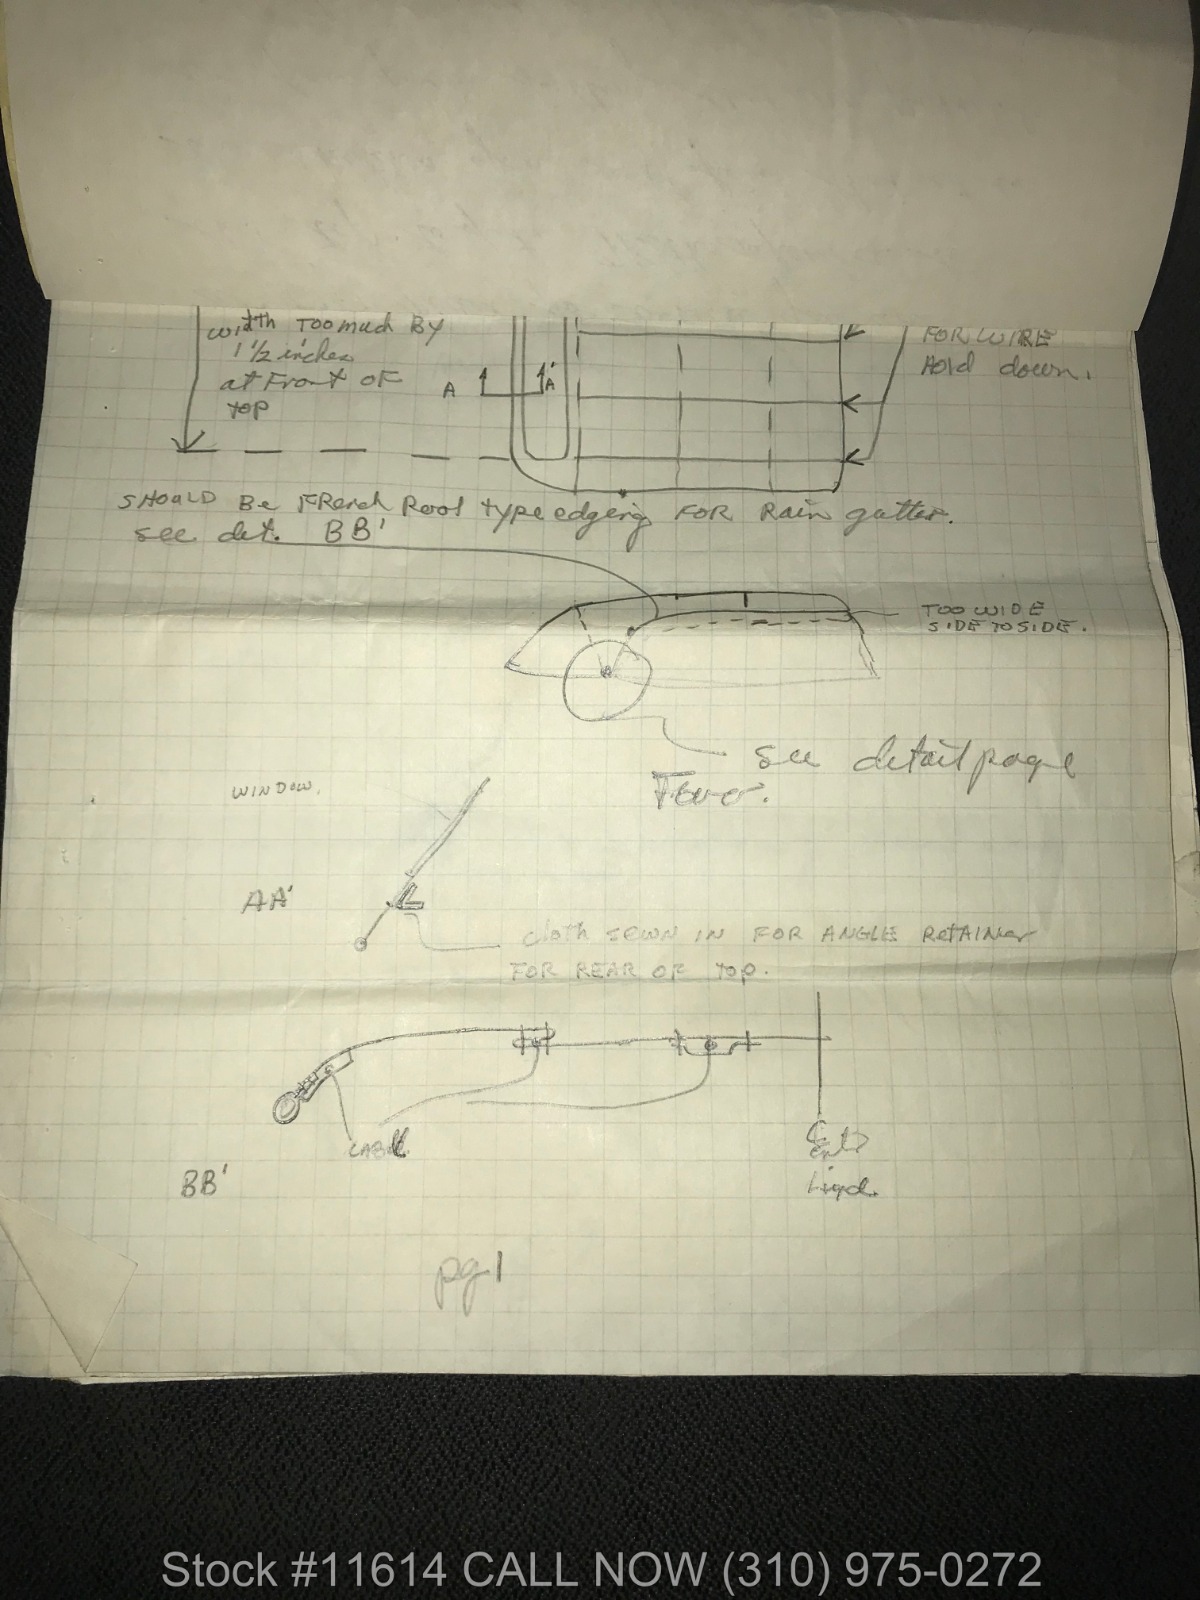 width Too much By
1 1/2 inches
at Front of
top
FOR WIRE
Hold down.
A A'
SHOULD Be FRench Roof type edging FOR Rain gutter.
see det. BB'
TOO WIDE
SIDE TO SIDE.
see detail page
WINDOW.
AA'
cloth SEWN IN FOR ANGLE RetAINer
FOR REAR OF top.
CABLE
BB'
pg 1
Stock #11614 CALL NOW (310) 975-0272